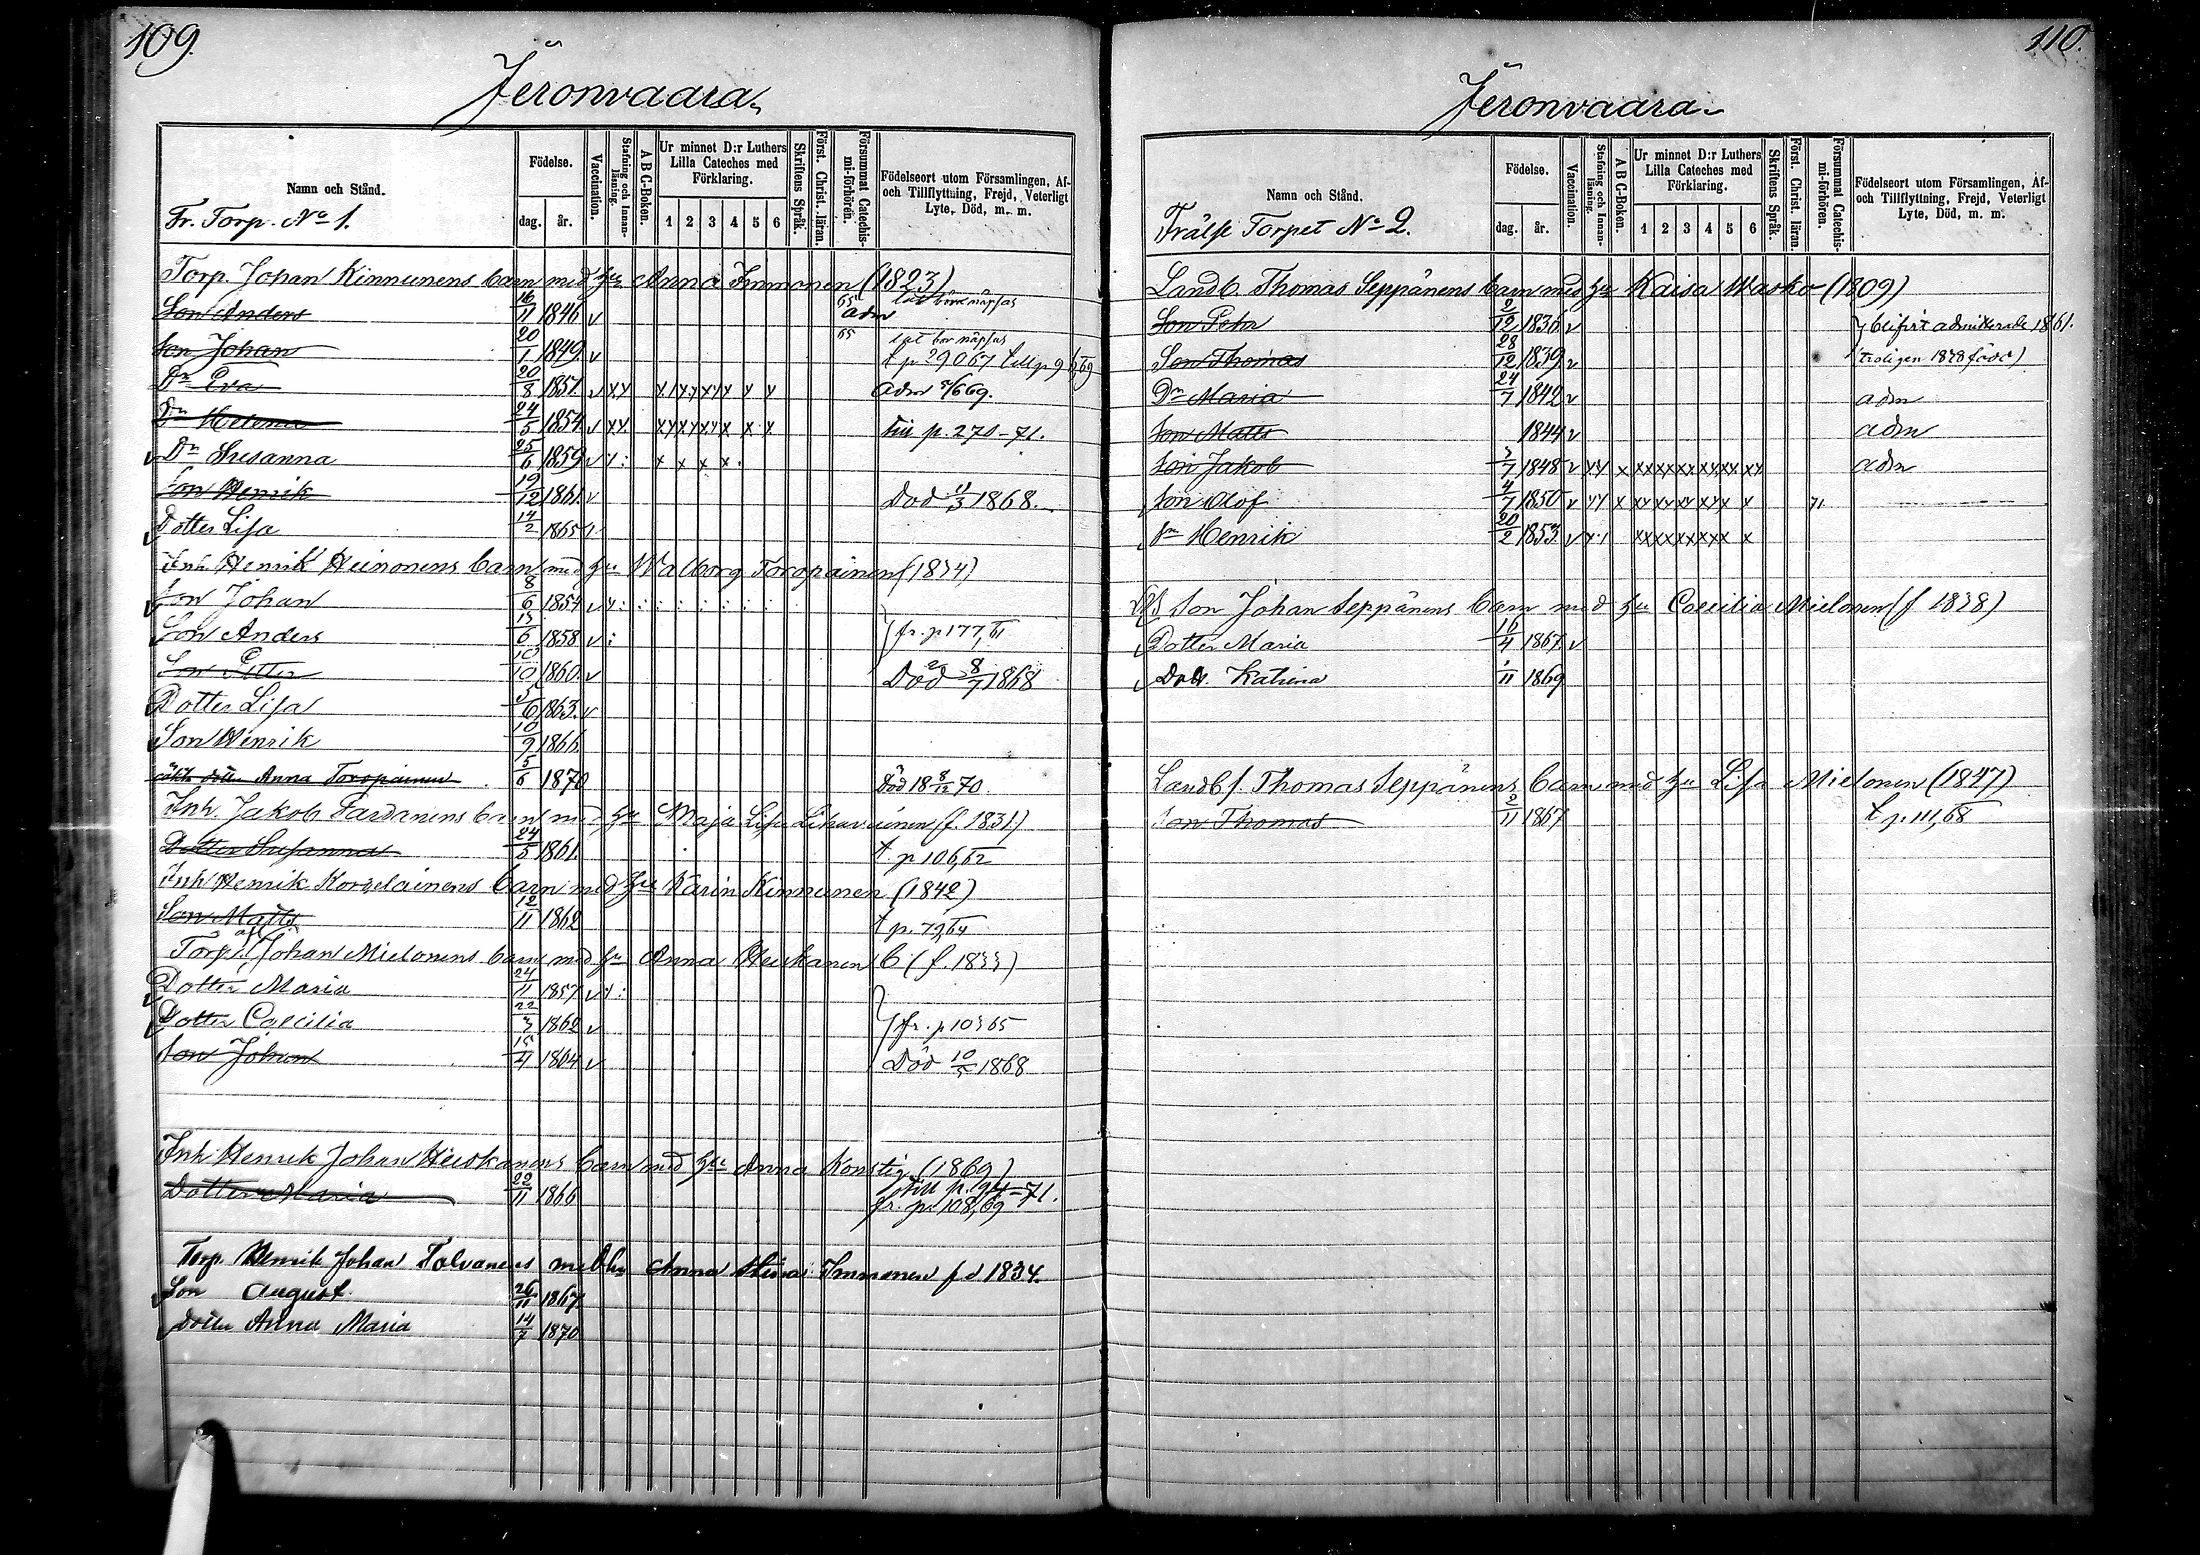 109.
Jeronvaara
Namn och Stånd.
Fr. Torp. No 1.
Födelse.
dag. år.
Vaccination.
Stafning och Innanläsning.
A B C-Boken.
Ur minnet D:r Luthers Lilla Cateches med Förklaring.
1 2 3 4 5 6
Skriftens Språk.
Först. Christ. läran.
Försummat Catechismi-förhören.
Födelseort utom Församlingen, Af- och Tillflyttning, Frejd, Veterligt Lyte, Död, m. m.
Torp. Johan Kinnunens barn med Hu Anna Immonen (1823)
Son Anders 16/11 1846 v 65 adm
Son Johan 20/1 1849 v 65
Dr Eva 20/8 1851 v xx adm 669.
Dr Helena 24/5 1854 v xx till p. 270-71.
Dr Susanna 25/6 1859 v x: x x x x
Son Henrik 19/12 1861 v Död 11/3 1868.
Dotter Lisa 14/2 1865 v
Inh. Henrik Heinonens barn med Hu Walborg Toropainen (1834)
Son Johan 8/6 1854 v x:
Son Anders 13/6 1858 v : fr. p 177, 61
Son Petter 10/10 1860 v Död 8/7 1868
Dotter Lisa 5/6 1863. v
Son Henrik 10/9 1866
oäkta dotter Anna Toropainen 5/6 1870 Död 18 8/12 70.
Inh. Jakob Tardanens barn med Hu Maja Lisa Likavainen (f. 1831)
Dotter Susanna 24/5 1861. t. p 106, 62
Inh Henrik Korpelainens barn med Hu Karin Kinnunen (1842)
Son Matts 12/11 1862 t p. 79, 64
Torp. Johan Mielonens barn med Hu Anna Heiskanen (f. 1833)
Dotter Maria 24/11 1857 v x:
Dotter Caecilia 22/3 1862 v fr. p 103 65
Son Johan 15/4 1864 v Död 10/5 1868
Inh Henrik Johan Heiskanens barn med Hu Anna Konstig (1869)
Dotter Maria 22/11 1866 till p. 94-71.
fr. p. 108, 69
Torp. Henrik Johan Tolvanens med hu Anna Stina Immonen fd 1834.
Son August. 26/11 1867.
Dotter Anna Maria 14/7 1870
110.
Jeronvaara
Namn och Stånd.
Frälse Torpet No 2.
Födelse.
dag. år.
Vaccination.
Stafning och Innanläsning.
A B C-Boken.
Ur minnet D:r Luthers Lilla Cateches med Förklaring.
1 2 3 4 5 6
Skriftens Språk.
Först. Christ. läran.
Försummat Catechismi-förhören.
Födelseort utom Församlingen, Af- och Tillflyttning, Frejd, Veterligt Lyte, Död, m. m.
Landb. Thomas Seppänens barn med Hu Kaisa Wasko (1809)
Son Pehr 2/12 1836 v admitterade 1861.
Son Thomas 28/12 1839 v (troligen 1838 född)
Dr Maria 24/7 1842 v adm
Son Matts 1844 v adm
Son Jakob 3/7 1848 v xx x xx xx xx xx xx xx adm
Son Olof 4/7 1850 v xx x 71
Sn Henrik 20/2 1853 v
Son Johan Seppänens barn med Hu Caecilia Mielonen (f 1838)
Dotter Maria 16/4 1867 v
Dott. Katrina 1/11 1869
Landb s. Thomas Seppänens barn med Hu Lisa Mielonen (1847)
Son Thomas 2/11 1867 t p. 111, 68